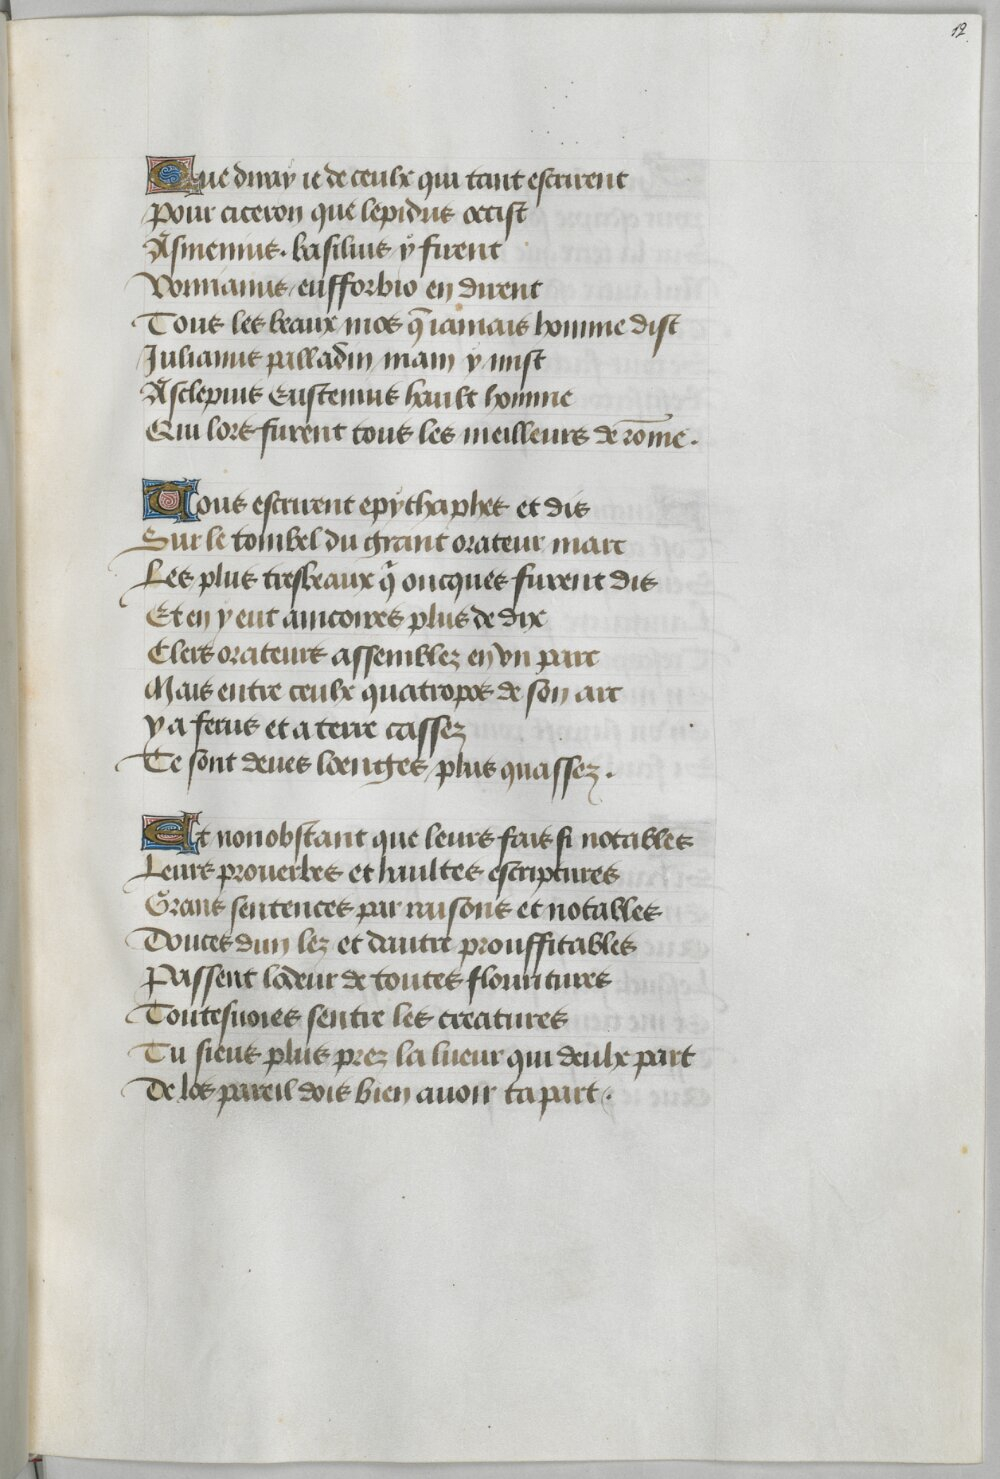 12
Que diray ie de ceulx qui tant escrirent
Pour ciceron que lepidus occist
Asmenius. basilius y firent
Vomanus eufforbio en dirent
Tous les beaux mos q̄ iamais homme dist
Julianus palladin main y mist
Asclepius Eustenius hault homme
Qui lors furent tous les meilleurs de rōme.
Tous escrirent epythaphes et dis
Sur le tombel du grant orateur marc
Les plus tresbeaux q̄ oncques furent dis
Et en y eut aincoires plus de dix
Clers orateurs assemblez en vn parc
Mais entre ceulx quatropos de son arc
y a ferus et a terre cassez
Te sont deues loenges plus quassez.
Et nonobstant que leurs fais si notables
Leurs prouerbes et haultes escriptures
Grans sentences par raisons et notables
Douces dun lez et dautre prouffitables
Passent lodeur de toutes flouritures
Toutesuoies sentre les creatures
Tu siens plus prez la lueur qui deulx part
De los pareil dois bien auoir ta part.